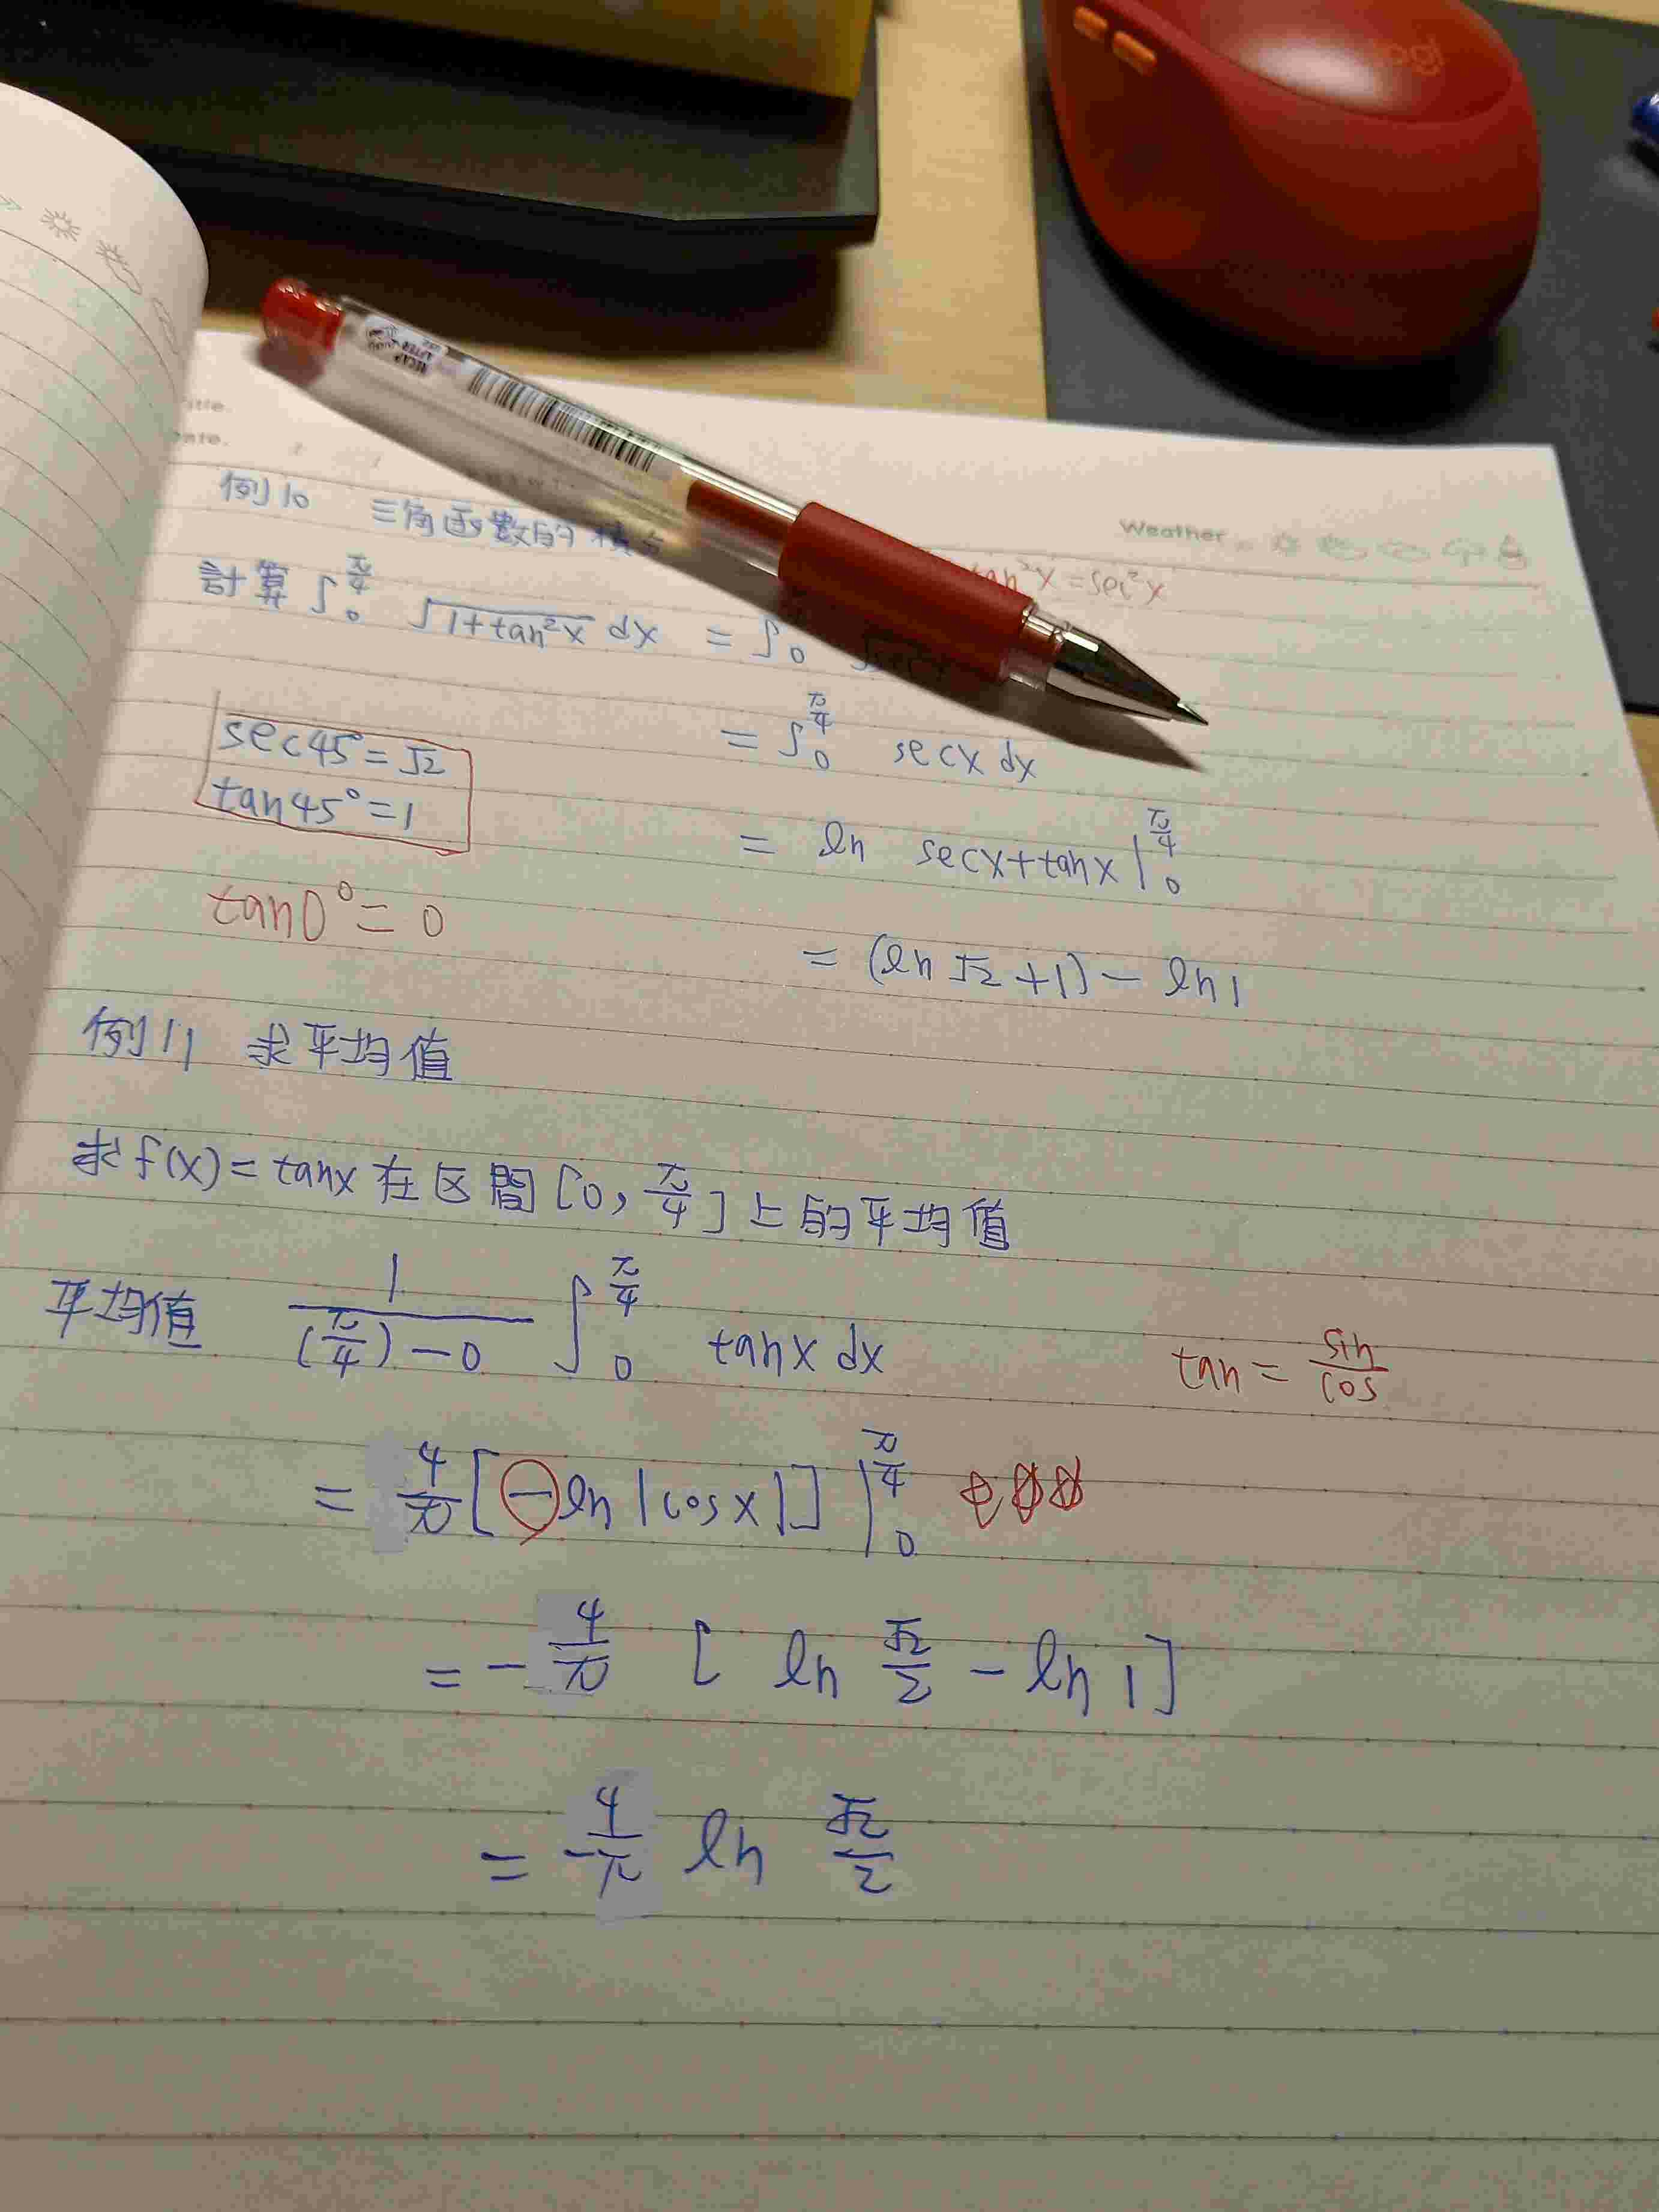 logi
Weather
例10 三角函數的積分
tan²x = sec²x
計算 ∫₀^(π/4) √(1+tan²x) dx = ∫₀
= ∫₀^(π/4) secx dx
sec45° = √2
tan45° = 1
= ln secx+tanx |₀^(π/4)
tan0° = 0
= (ln √2 +1) - ln1
例11 求平均值
求 f(x) = tanx 在区間 [0, π/4] 上的平均值
平均值 1/((π/4) - 0) ∫₀^(π/4) tanx dx
tan = sin/cos
= 4/π [-ln |cosx|] |₀^(π/4)
= - 4/π [ ln √2/2 - ln 1 ]
= - 4/π ln √2/2